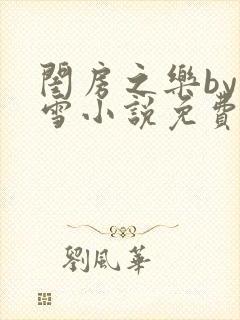 閨房之樂by
雪小説免費
劉風華